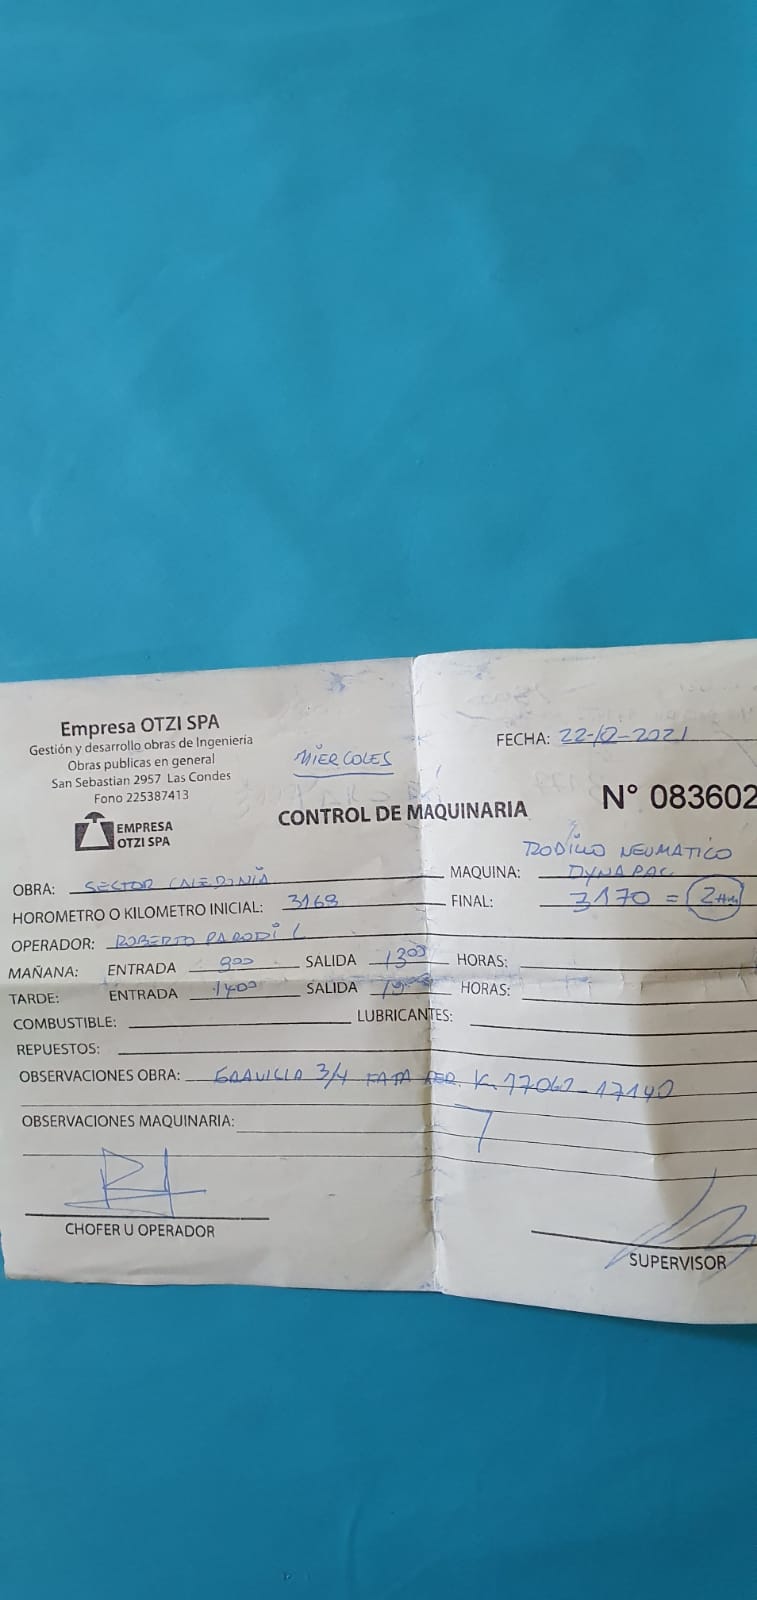 Empresa OTZI SPA
Gestión y desarrollo obras de Ingenieria
Obras publicas en general
San Sebastian 2957 Las Condes
Fono 225387413
EMPRESA
OTZI SPA
MIERCOLES
FECHA: 22-12-2021
CONTROL DE MAQUINARIA
N° 083602
RODILLO NEUMATICO
OBRA: SECTOR
MAQUINA: DYNAPAC
HOROMETRO O KILOMETRO INICIAL: 3168
FINAL: 3170 = 2
OPERADOR: ROBERTO PARODI L
MAÑANA: ENTRADA 800 SALIDA 1300 HORAS:
TARDE: ENTRADA 1400 SALIDA HORAS:
COMBUSTIBLE: LUBRICANTES:
REPUESTOS:
OBSERVACIONES OBRA: GRAVILLA 3/4 K. 17060-17140
OBSERVACIONES MAQUINARIA:
CHOFER U OPERADOR
SUPERVISOR